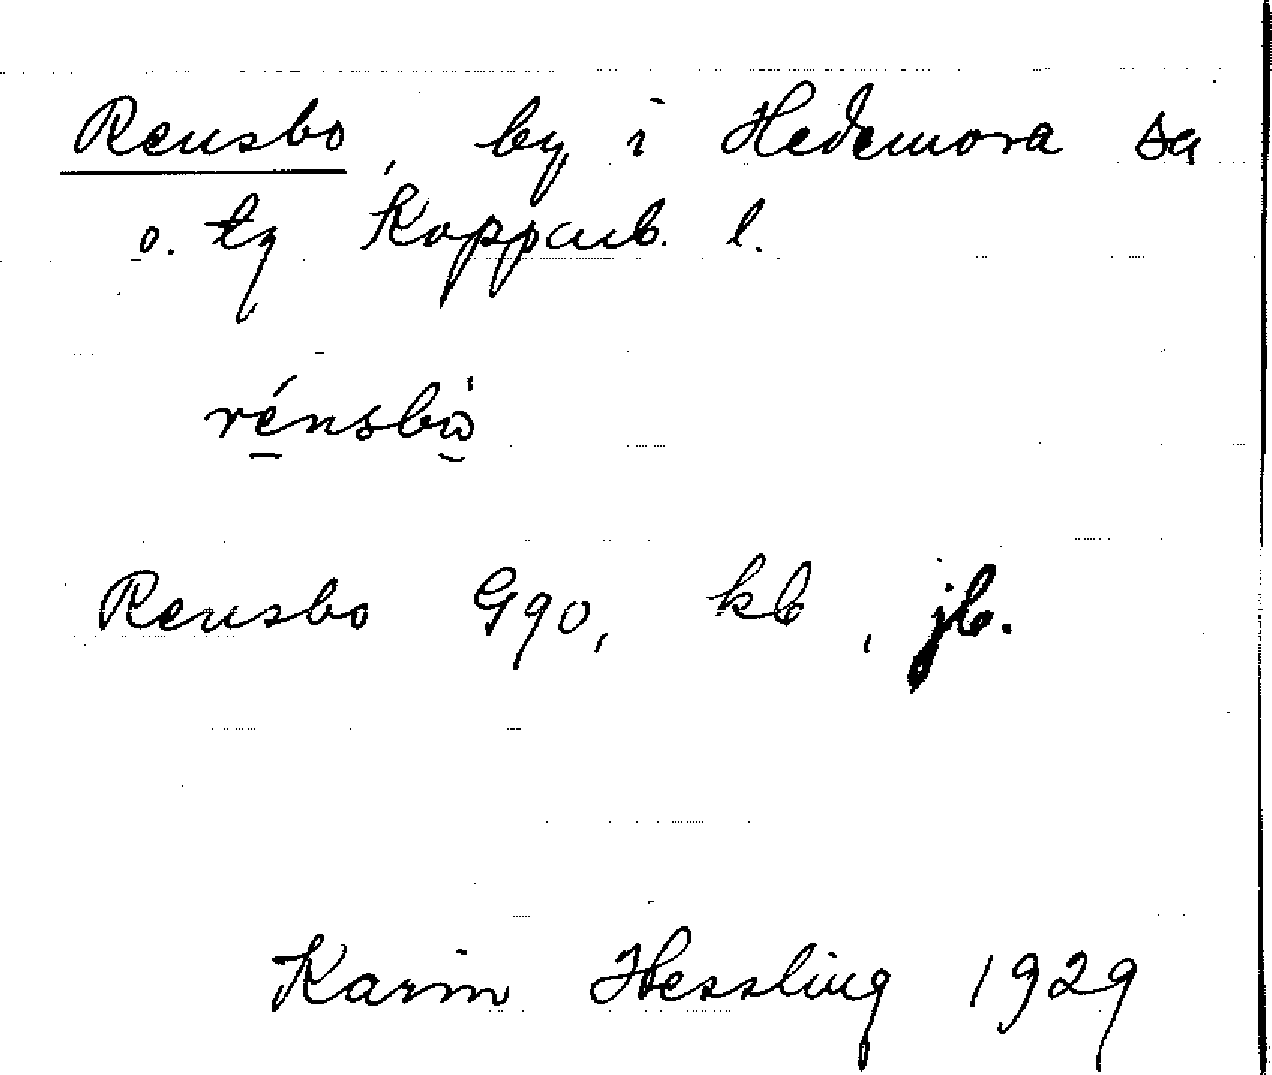 Rensbo, by i Hedemora sn
o. tg Kopparb. l.
rénsbὼ
Rensbo G90, kb, jb.
Karin Hessling 1929